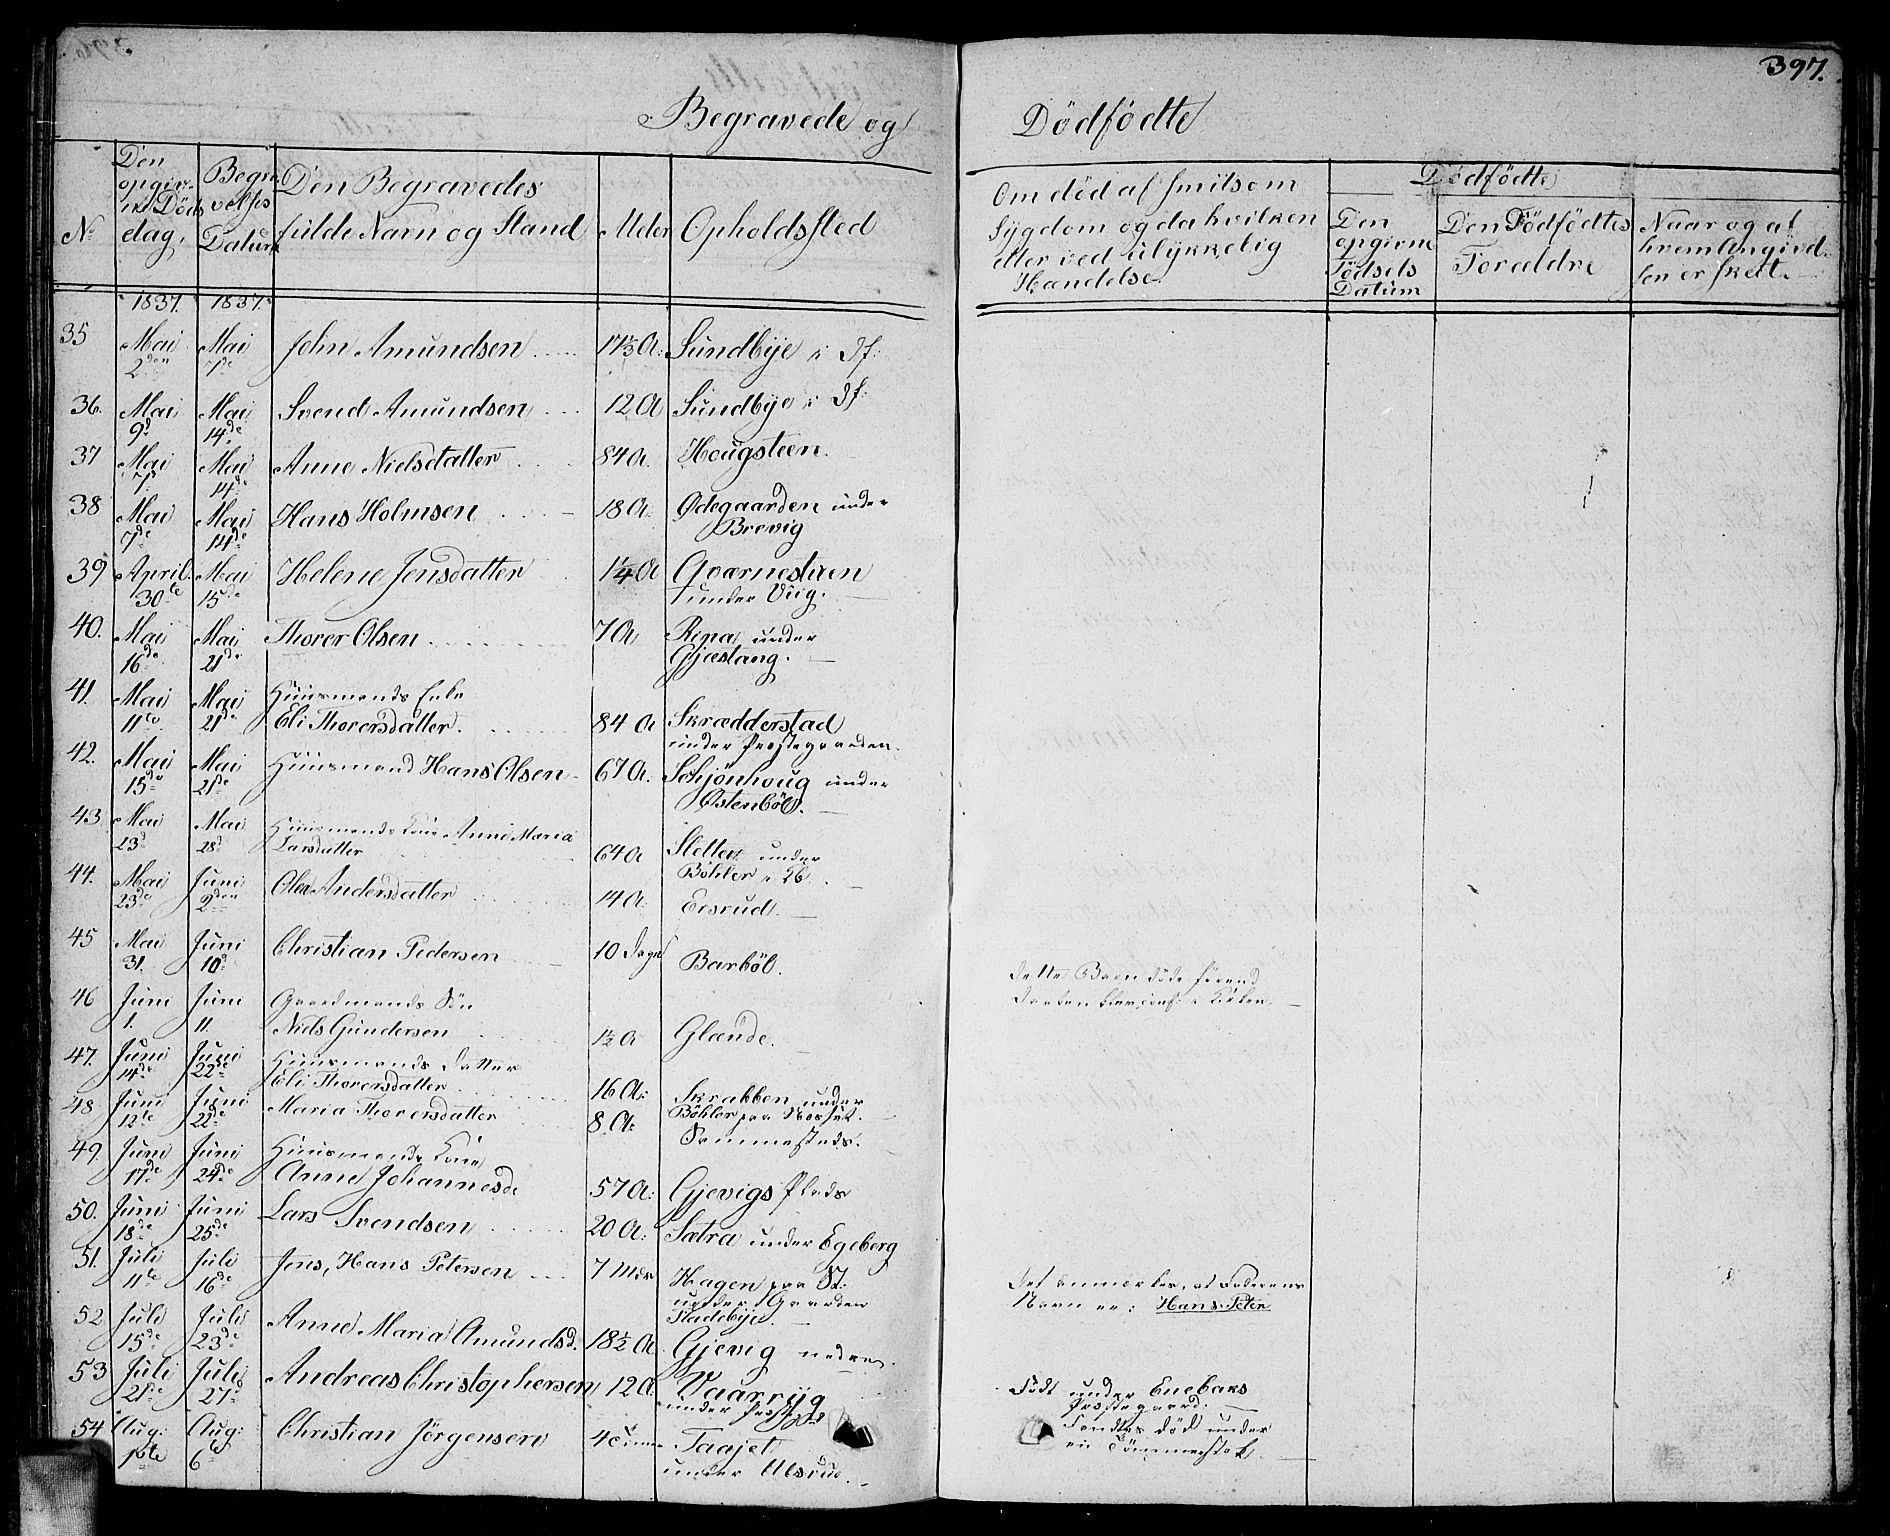 397.
Begravede og Dödfödte
No
Den opgivne Døds dag.
Begravelses Datum
Den Begravedes fulde Navn og Stand
Alder
Opholdssted
Om död af smitsom Sygdom og da hvilken eller ved ulykkelig Hændelse.
Dödfödte
Den opgivne Födsels Datum
Den Dödfödtes Forældre
Naar og af hvem Angivelsen er skeet.
1837. 1837.
35 Mai 2den Mai 7de John Amundsen 17 1/3 A: Sundbye i Df:
36. Mai 9de Mai 14de Svend Amundsen 12 A Sundbye i Df:
37 Mai 7de Mai 14de Anne Nielsdatter 84 A. Hougsteen.
38 Mai 7de Mai 14de Hans Holmsen 18 A. Ødegaarden under
Brevig
39 April 30te Mai 15de Helene Jensdatter 1 1/4 A Qværnestuen
under Viig.
40. Mai 16de Mai 21de Thorer Olsen 7 A Ripa under
Gjæstang.
41. Mai 11te Mai 21de Huusmands Enke
Eli Thorersdatter. 84 A Skrædderstad
under Prestegaarden.
42. Mai 15de Mai 21de Huusmand Hans Olsen 67 A. Schjönhoug under
Østenböl.
43 Mai 23d Mai 28d Huusmands Kone Anne Maria
Larsdatter 64 A Sletten under
Böhler i 26.
44. Mai 23de Juni 2den Olea Andersdatter 14 A: Ersrud.
45 Mai 31. Juni 10d Christian Pedersen 10 Dage Barböl.
Dette Barn döde förend
Daaben blev conf: i Kirken.
46 Juni 1. Juni 11. Gaardmands Sön
Niels Gundersen 1 1/2 A Glænde.
47. Juni 14de Juni 22de Huusmands Datter
Eli Thorersdatter 16 A: Skrabben under
48 Juni 12te Juni 22de Maria Thorersdatter 8 A: Böhler paa
Sammesteds.
49. Juni 17de Juni 24de Huusmands Kone
Anne Johannesd: 57 A: Gjevigs Plads
50. Juni 18de Juni 25de Lars Svendsen 20 A: Sætra under Egeberg
51. Juli 11te Juli 16de Jens, Hans Petersen 7 Mdr Hagen paa St:
under Gaarden
Stadebye.
Det anmærkes, at Faderens
Navn er: Hans Peter
52 Juli 15de Juli 23de Anne Maria Amundsd. 18 1/2 A. Gjevig nedre.
53 Juli 21de Juli 27d Andreas Christophersen 12 A. Vaarryg
under
Födt under Enebaks
Præstegaard:
54 Aug: 1ste Aug: 6te Christian Jörgensen 4 Taajet
under Alsrud.
Fandtes död under
en Tömmerstok.